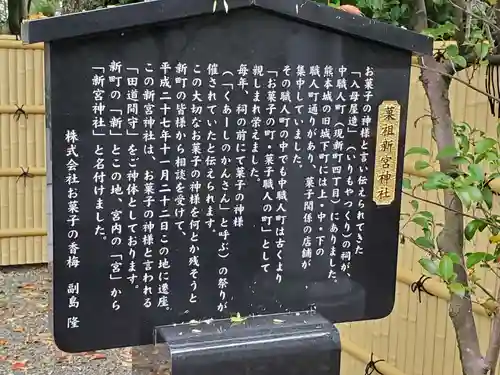 菓祖新宮神社
お菓子の神様と言い伝えられてきた
「入母屋造」(いりもやつくり)の祠が、
中職人町(現新町四丁目)にありました。
熊本城の旧城下町には上・中・下の
職人町通りがあり、菓子関係の店舗が
集中していました。
その職人町の中でも中職人町は古くより
「お菓子の町・菓子職人の町」として
親しまれ栄えました。
毎年、祠の前にて菓子の神様
(「くゎーしのかんさん」と呼ぶ)の祭りが
催されていたと伝えられます。
この大切なお菓子の神様を何とか残そうと、
新町の皆様から相談を受けて、
平成二十七年十一月二十二日この地に遷座。
この新宮神社は、お菓子の神様と言われる
「田道間守」をご神体としております。
新町の「新」とこの地、宮内の「宮」から
「新宮神社」と名付けました。
株式会社お菓子の香梅 副島 隆